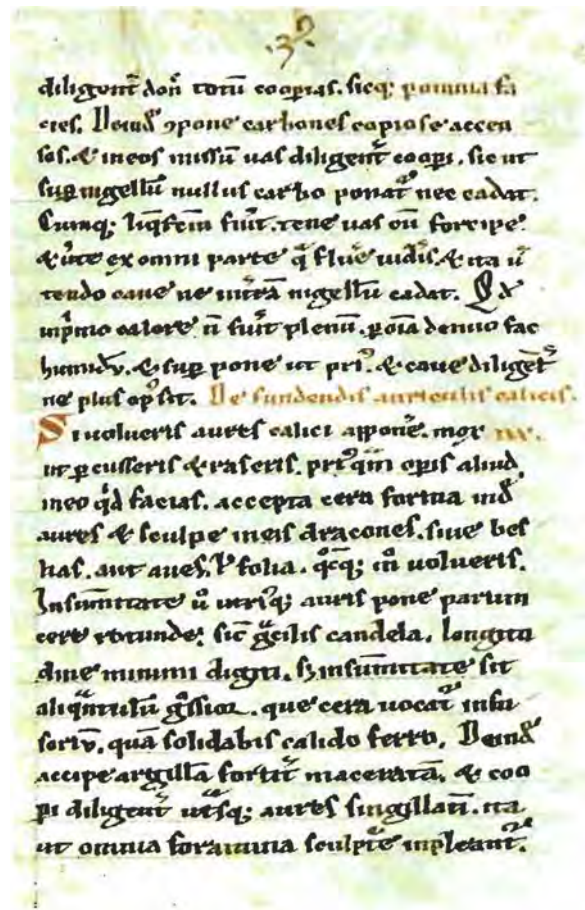 diligent̄ don̄ totū coop̄ias. sicq; p omnia fa
cies. Deinđ ꝯpone carbones copiose accen
sos. & in eos missū uas diligent̄ coop̄i. sic ut
sup̄ nigellū nullus carbo ponat᷑ nec cadat.
Cumq; liq̄factū fuit̄. tene uas cū forcipe
& ūte ex omni parte q̄ fluē uidis̄. & ita ū
tendo caue ne int̄rā nigellū cadat. Qđ
inp̄mo calore n̄ fuit̄ plenū. p oīa denuo fac
humidū. & sup̄ pone ut pri᷒. & caue diligent̄
ne plus op᷒ sit. De fundendis auriculis calicis.
Si uolueris aures calici apponē. mox xxx.
ut p̄cusseris & raseris. pri᷒q̄m opis aliud
in eo q̄d facias. accepta cera forma inđ
aures & sculpe in eis dracones. siue bes
tias. aut aues. ł folia. q̄cq; m̄ uolueris.
In sūmitate ū utri᷒q; auris pone parum
cere rotunde. sic̄ g̃cilis candela. longitu
dine minimi digiti. sꝫ in sūmitate sit
aliq̄ntulū g̃ssior. que cera uocat᷑ infu
soriū. quā solidabis calido ferro. Deinđ
accipe argillā fortit̄ maceratā. & coo
pi diligent̄ ut̄sq; aures singillatī. ita
ut omnia foramina sculptē inpleant᷑.